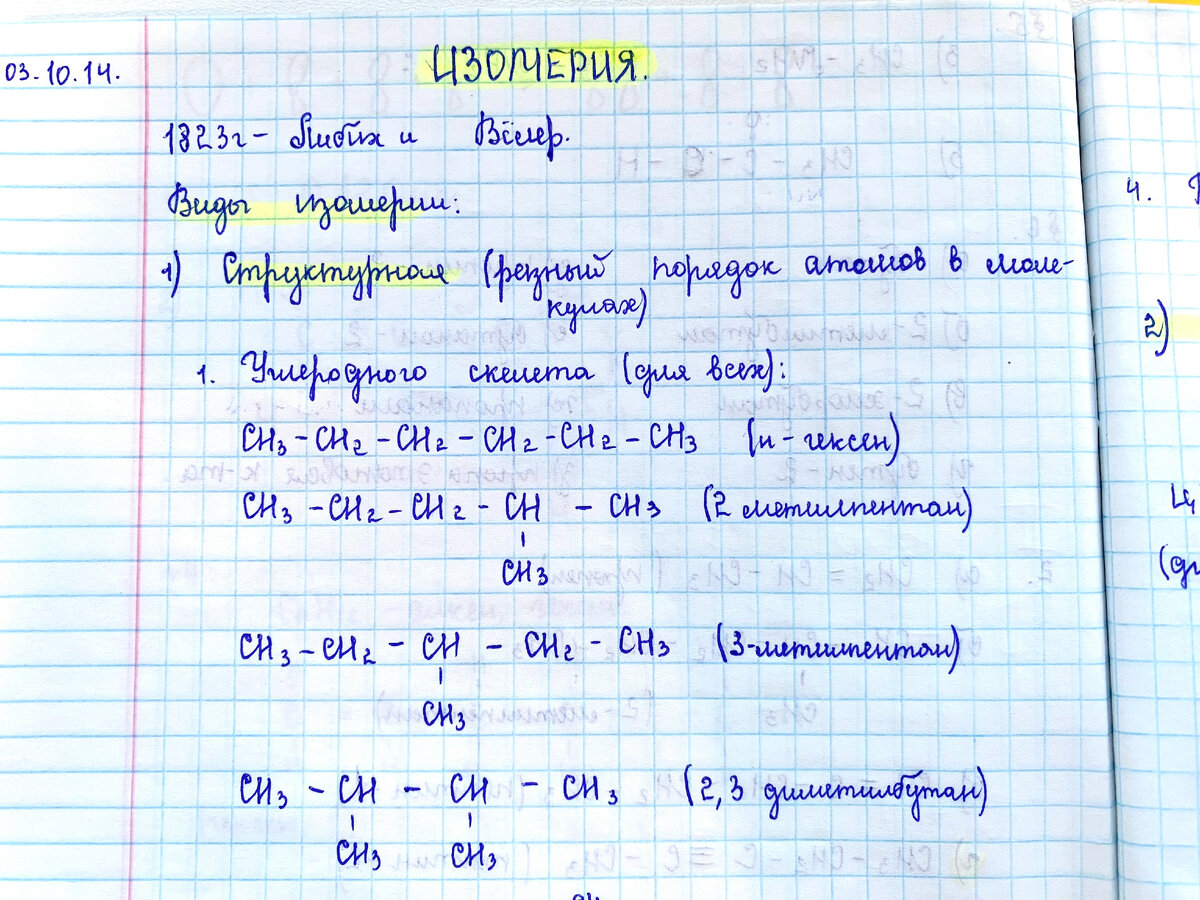 03.10.14.
ИЗОМЕРИЯ.
1823г - Либих и Вёлер.
Виды изомерии:
1) Структурная (разный порядок атомов в моле-
кулах)
1. Углеродного скелета (для всех):
CH₃ - CH₂ - CH₂ - CH₂ - CH₂ - CH₃ (н - гексан)
CH₃ - CH₂ - CH₂ - CH - CH₃ (2 метилпентан)
CH₃
CH₃ - CH₂ - CH - CH₂ - CH₃ (3-метилпентан)
CH₃
CH₃ - CH - CH - CH₃ (2,3 диметилбутан)
CH₃ CH₃
4.
2)